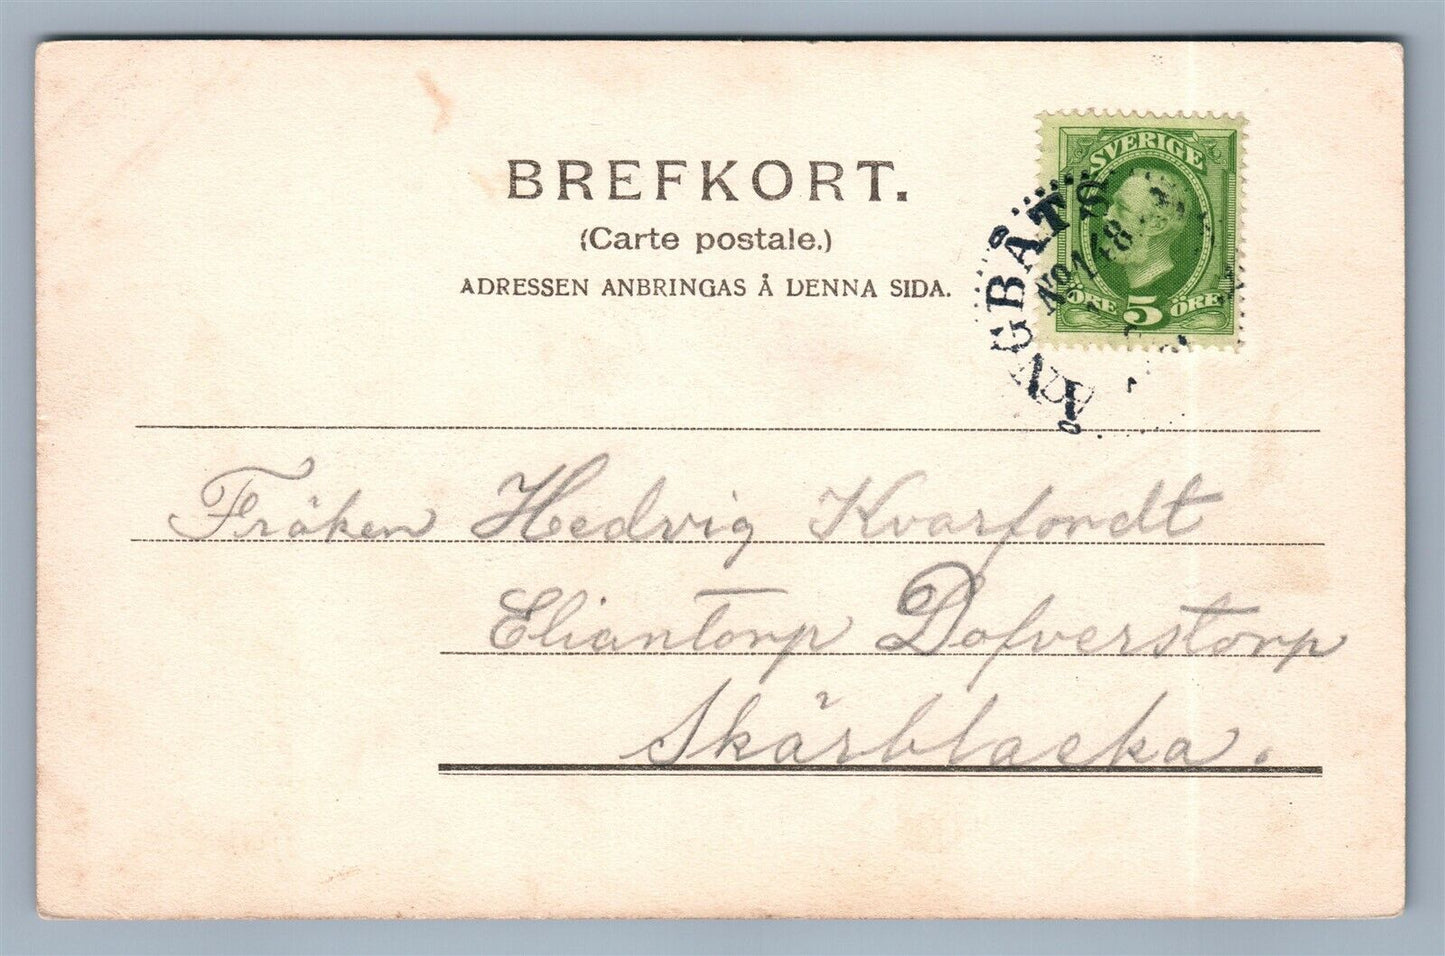 BREFKORT.
(Carte postale.)
ADRESSEN ANBRINGAS Å DENNA SIDA.
SVERIGE
ÖRE 5 ÖRE
ÅNGBÅTS
No 148
Fröken Hedvig Kvarfordt
Eliantorp Dofverstorp
Skärblacka.